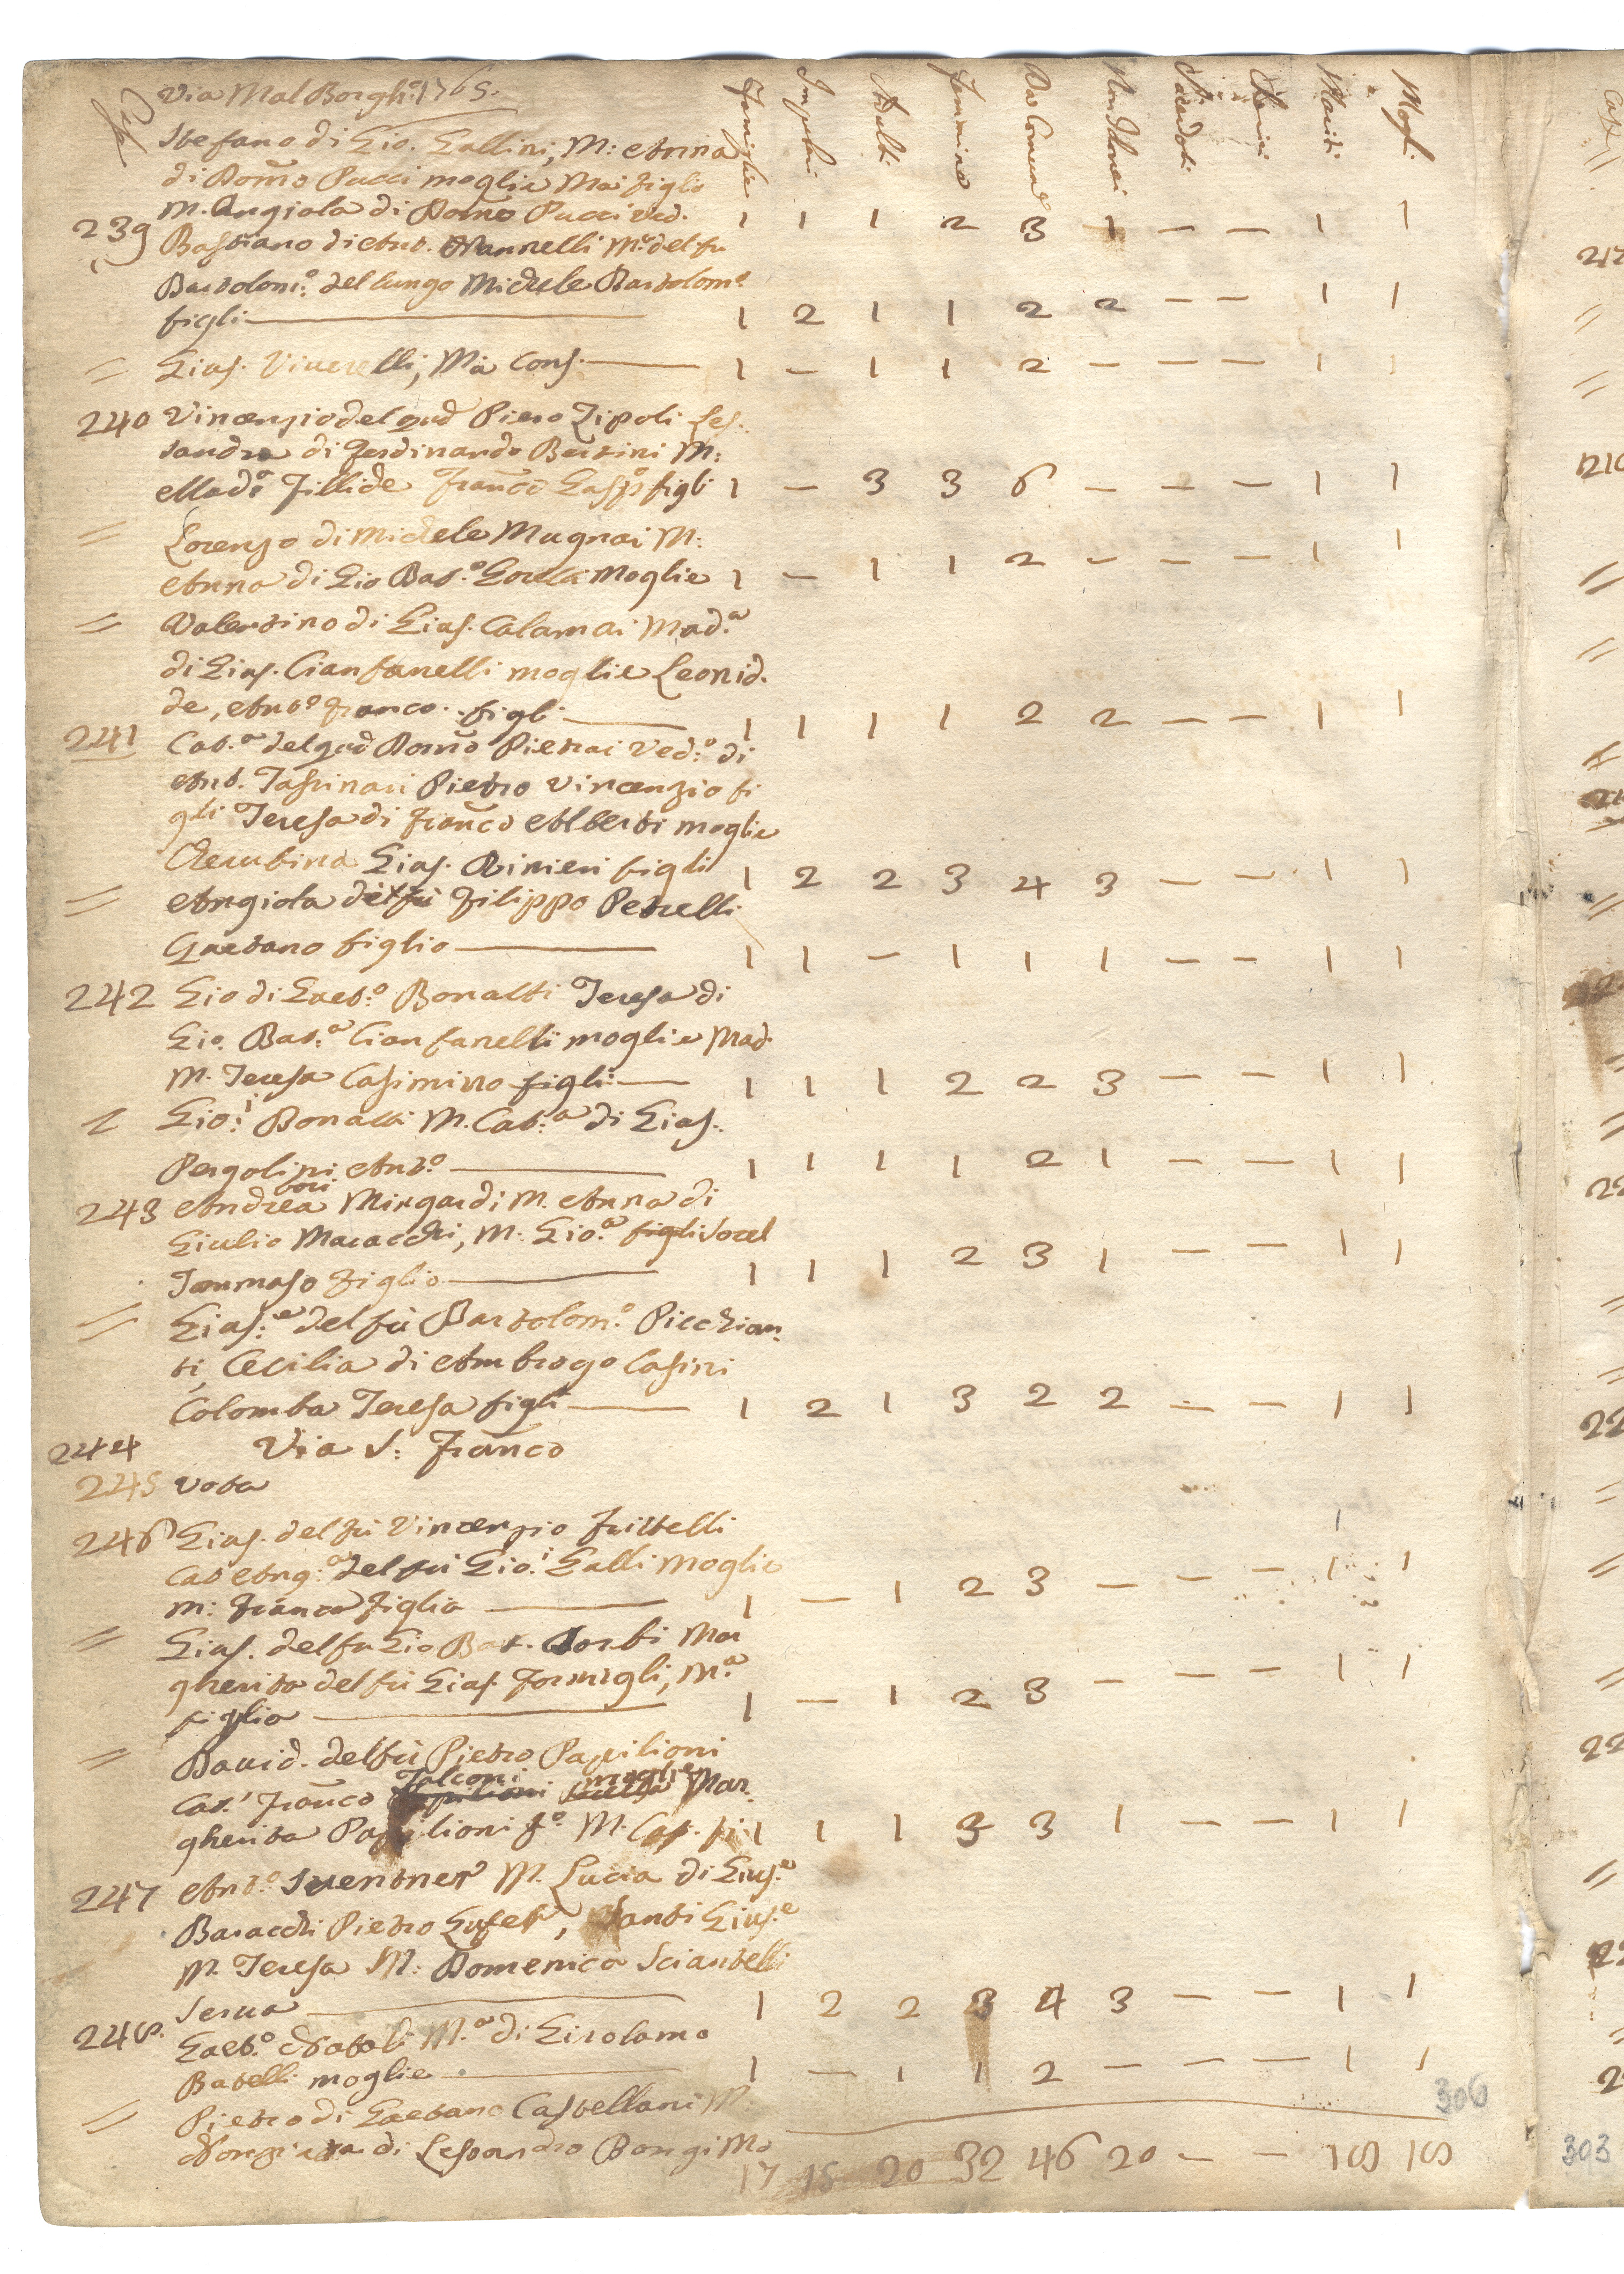 Case Via Mal Borgh: 1765. Famiglie Impuberi Adulti Femmine Da Comun Sacerdoti Mariti Mogli
Stefano di Gio. Gallini, M: Anna
di Dom̃o Pucci moglie Ma: figlia
M. Angiola di Dom̃o Pucci ved.
239 1 1 1 2 3 1 — — 1 1
Bastiano di Ant. Nannelli Mª del fu
Bartolom:º del lungo Michele Bartolomº
figli 1 2 1 1 2 2 — — 1 1
= Gius. Mà Cons. 1 — 1 1 2 — — — 1 1
240 Vincenzio del qud Piero Zipoli Les:
sandra di Ferdinando Bertini M:
Madª Fillide Franc̃o Gaspº figli 1 — 3 3 6 — — — 1 1
= Lorenzo di Michele Mugnai M:
Anna di Gio Bat.º moglie 1 — 1 1 2 — — — 1 1
= Valentino di Gius. Calamai Mad.ª
di Gius. Cianfanelli moglie Leonid.
de, Antº Franco. figli 1 1 1 1 2 2 — — 1 1
241 Cat.ª del qud Dom̃o Pierai Ved:ª di
Ant. Tassinari Pietro Vincenzio fi
gli Teresa di Franc̃o Alberti moglie
Cherubina Gius. Rinieri figli 1 2 2 3 4 3 — — 1 1
= Angiola del fù Filippo Petrelli
Gaetano figlio 1 1 — 1 1 1 — — 1 1
242 Gio di Gaet:º Bonatti Teresa di
Gio. Bat:ª Cianfanelli moglie Mad.
M. Teresa Casimirro figli 1 1 1 2 2 3 — — 1 1
= Gio:i Bonatti M. Cat:ª di Gius.
Pergolini Ant.º 1 1 1 1 2 1 — — 1 1
243 Andrea Mingardi M. Anna di
Giulio Maracchi, M: Gio.ª figli sorel
Tommaso figlio 1 1 1 2 3 1 — — 1 1
= Gius:e del fù Bartolom:º Picchian
ti, Cecilia di Ambrogo Casini
Colomba Teresa figli 1 2 1 3 2 2 — — 1 1
244 Via S: Franc̃o
245 Vota
246 Gius. del fù Vincenzio Frittelli 1
Cat Ang:ª del fù Gio:i Galli moglie
M: Franca figlia 1 — 1 2 3 — — — 1 1
= Gius. del fu Gio Bat. Sorbi Mar
gherita del fù Gius. Formigli, M.ª
figlia 1 — 1 2 3 — — — 1 1
= David. del fù Pietro Papilioni
Falconi moglie
Cat.ª Franc̃o Mar.
gherita Papilioni fº M. Cat. fi 1 1 1 3 3 1 — — 1 1
247 Ant.º M. Lucia di Gius.e
Baracchi Pietro Santi Gius.e
M. Teresa M: Domenica Sciantelli
Serva 1 2 2 3 4 3 — — 1 1
248. Gaet.º Natali M.ª di Girolamo
Batelli moglie 1 — 1 1 2 — — — 1 1
= Pietro di Gaetano Castellani M.
di Lessandro Bongi Mo
306
17 15 20 32 46 20 — — 18 18
303